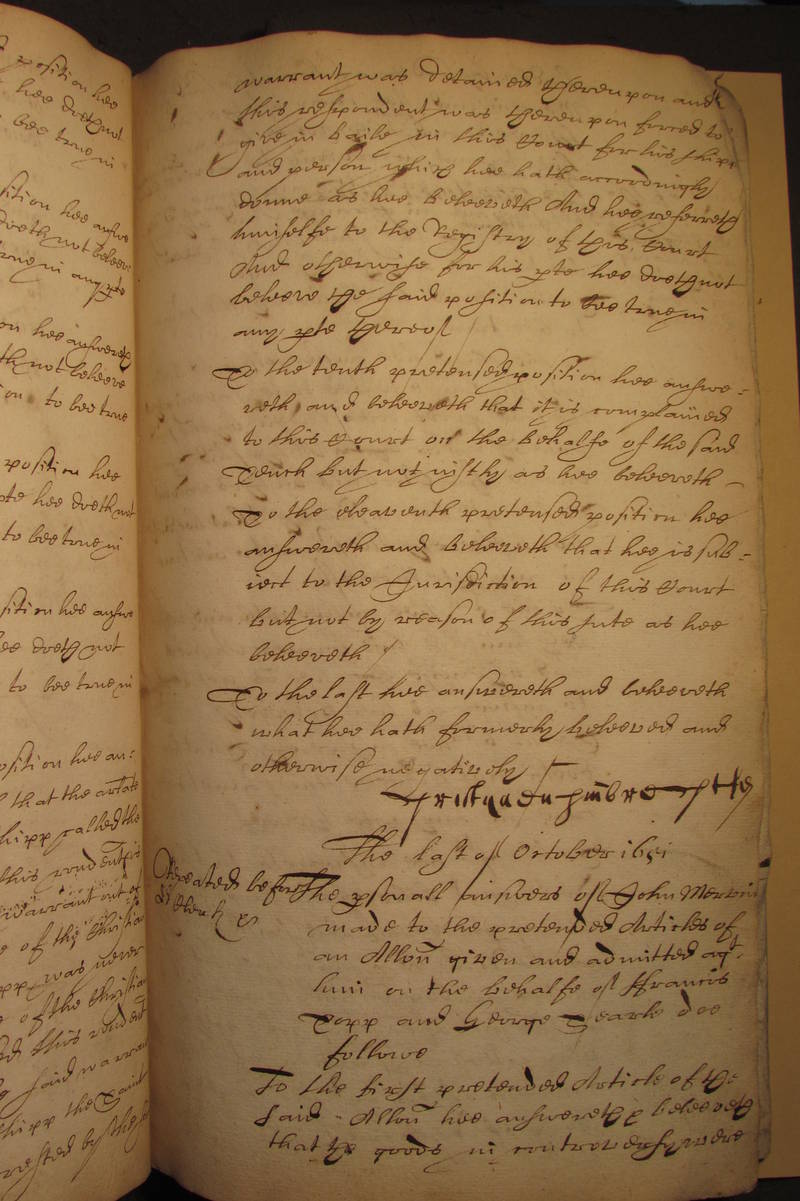 position hee
hee doeth not
bee true in
sition hee answe
doeth not beleeve
true in any pte
on hee answereth
th not beleeve
ion to bee true
position hee
pte hee doeth not
to bee true in
sition hee answe
ee doeth not
to bee true in
osition hee an=
that the arlate
hipp called the
this rondent is
warrant out of
e of the Christian
pp was never
e of the Christian
ed this rondent
said warran
hipp the
rested by the
warrant was detained thereupon and
this respondent was thereupon forced to
give in baile in this Court for his shipp
and person which hee hath accordingly
donne as hee beleeveth And hee referreth
himselfe to the Registry of this Court
And otherwise for his pte hee doeth not
beleeve the said position to bee true in
any pte thereof
To the tenth pretensed position hee answe=
reth and beleeveth that it is complained
to this Court on the behalfe of the said
but not justly as hee beleeveth
To the eleaventh pretensed position hee
answereth and beleeveth that hee is sub=
iect to the Jurisdiction of this Court
but not by reason of this sute as hee
beleeveth
To the last hee answereth and beleeveth
what hee hath formerly beleeved and
otherwise negatively
The last of October 1651
Repeated before
The psonall answers of John
made to the pretended Articles of
an Allon given and admitted agt
him on the behalfe of ffrancis
and George doe
followe
To the first pretended Article of the
said Allon hee answereth & beleeveth
that the goods in controversy were